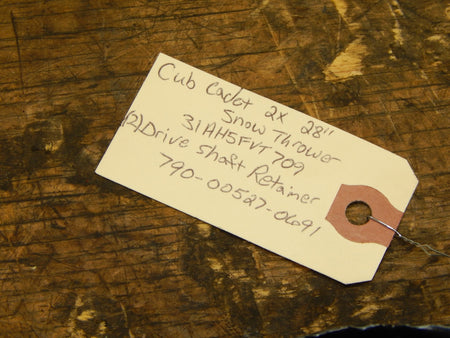 Cub Cadet 2X 28"
Snow Thrower
31AH5FVT709
(2) Drive Shaft Retainer
790-00527-0691